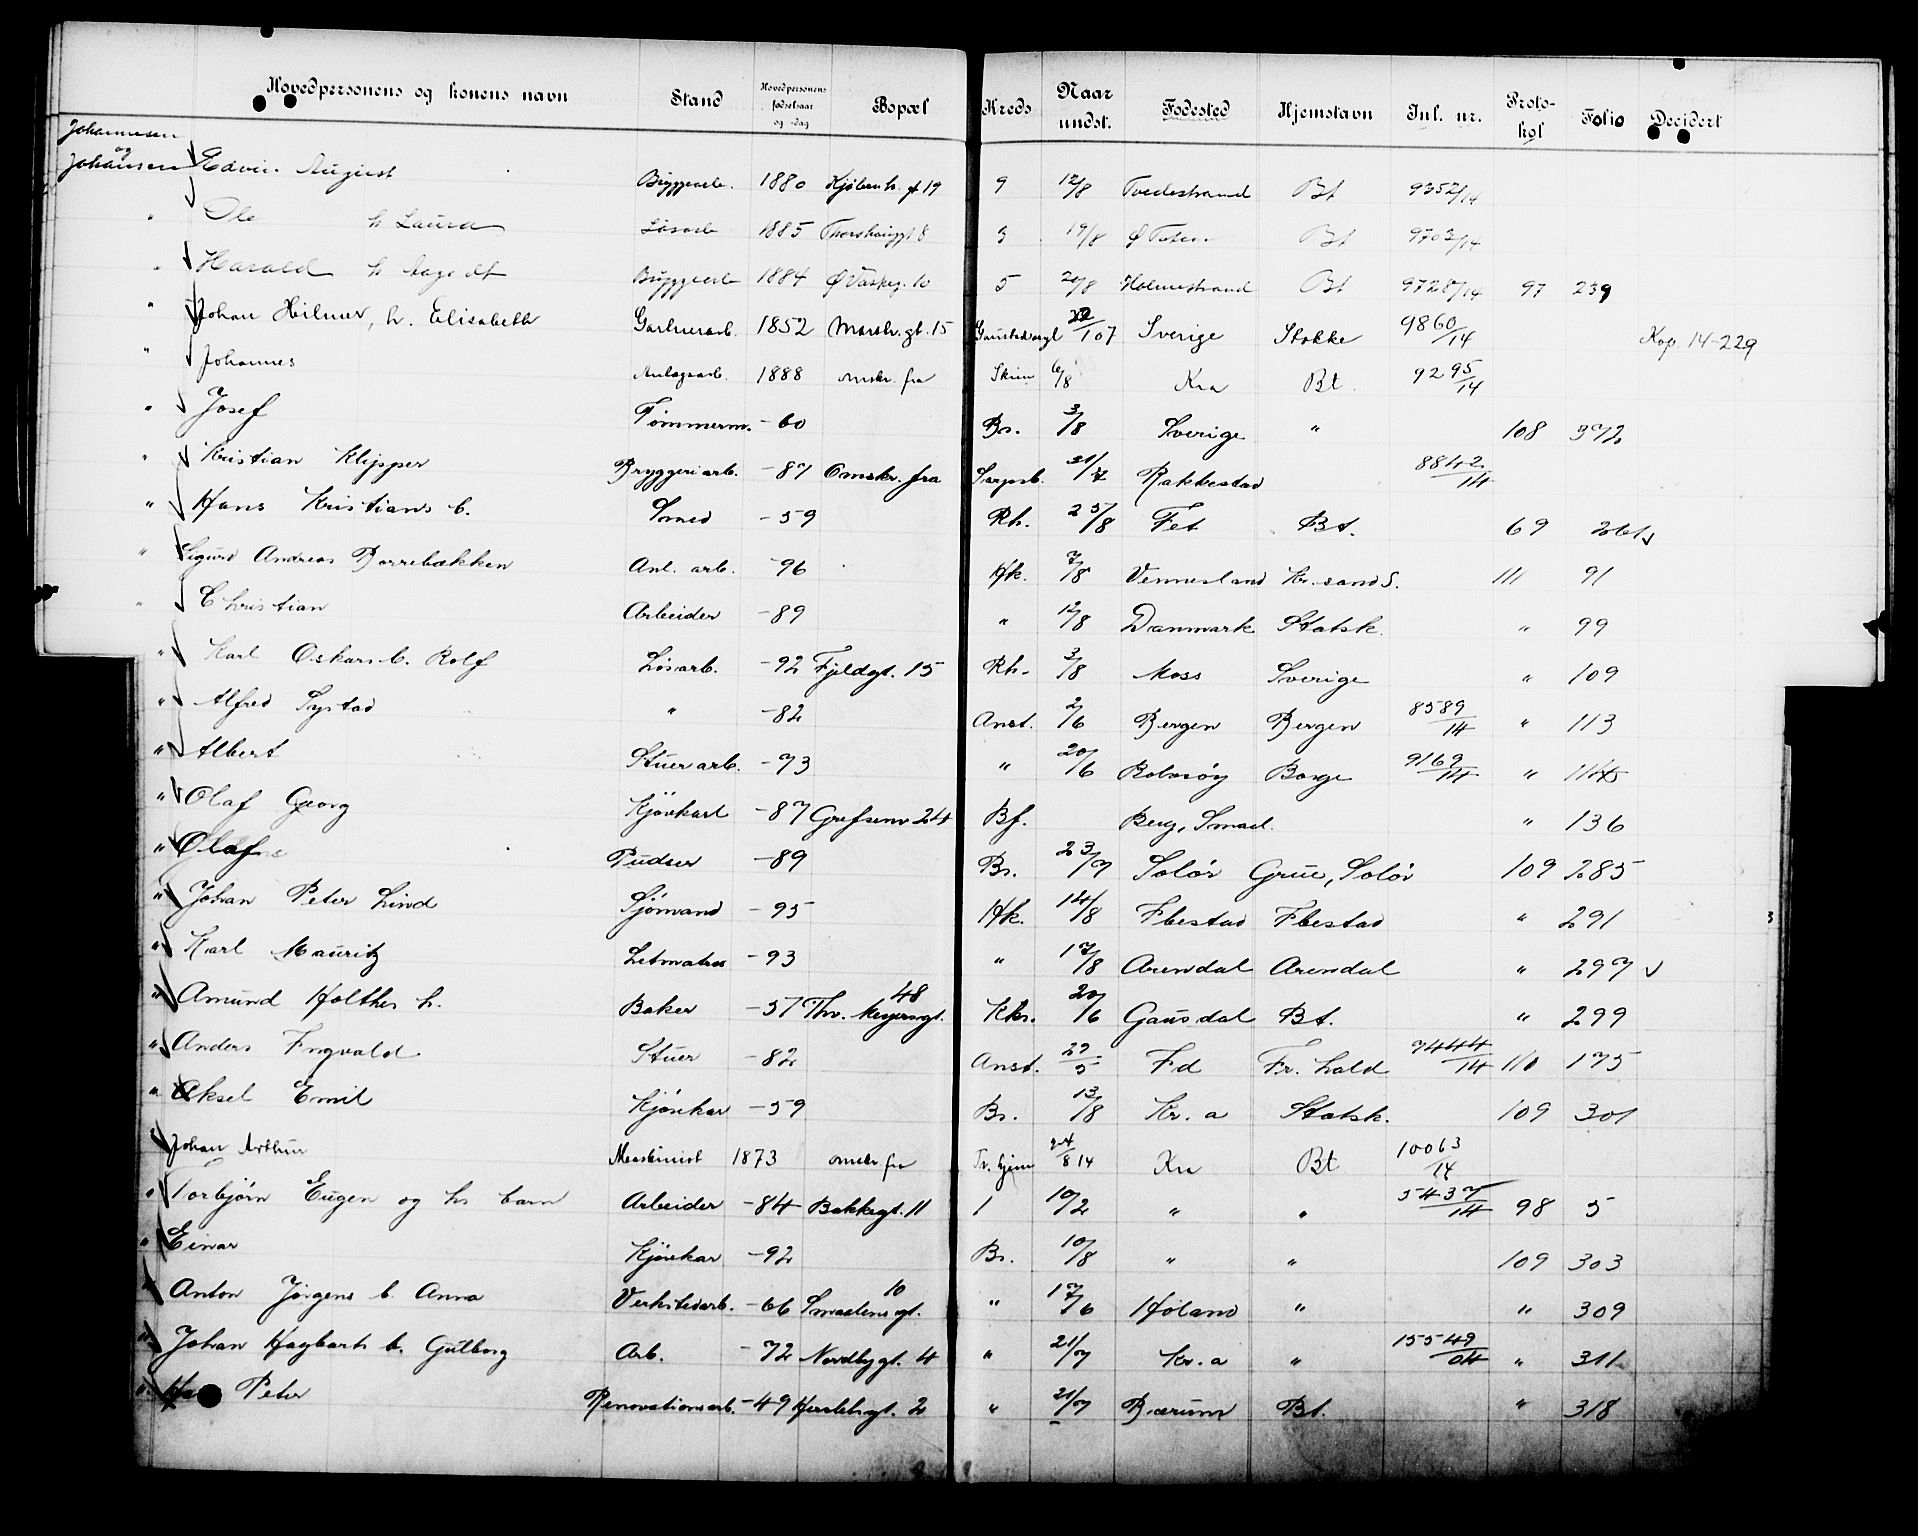 Hovedpersonens og konens navn Stand Hovedpersonens fødselsaar og -dag Bopæl Kreds Naar undst. Fødested Hjemstavn Jnl. nr. Protokol Folio Decidert
Johannesen og Johansen Edvin August Byggearb. 1880 Kjøbenh. gt 19 9 12/8 Tvedestrand Bt 9352/14
" Ole h Laura Løsarb 1885 Thorshauggt 8 3 19/8 Ø Toten Bt 9703/14
" Harald h Byggearb 1884 10 5 20/8 Holmestrand Bt 9728/14 97 239
" Johan Hilmer, h. Elisabeth Gartnerarb. 1852 Markv. gt. 15 107 Sverige Stokke 9860/14 Kop. 14-229
" Johannes Anlægsarb. 1888 omskr. fra Skien 6/8 Kra Bt. 9295/14
" Josef Tømmerm. - 60 Br. 3/8 Sverige " 108 372
" Kristian Klipper Bryggeriarb. - 87 Omskr. fra Sarpsb. 31/7 Rakkestad 8842/14
" Hans Kristians b. Smed - 59 Rh. 25/8 Fet Bt. 69 361
" Sigurd Andreas Borrebækken Anl. arb. - 96 Hk. 7/8 Vennesland Kr. sand S. 111 91
" Christian Arbeider - 89 " 12/8 Danmark Statsk. " 99
" Karl Oskars b. Rolf Løsarb. - 92 Fjeldgt. 15 Rh. 3/8 Moss Sverige " 109
" Alfred Systad " - 82 Anst. 2/6 Bergen Bergen 8589/14 " 113
" Albert Stuerarb. - 73 " 20/6 Rolvsøy Borge 9169/14 " 1145
" Olaf Georg Kjørekarl - 87 Grefsenv 24 Bf. Berg, Smaal. " 136
" Olaf Pudser - 89 Br. 23/7 Solør Grue, Solør 109 285
" Johan Peter Lind Sjømand - 95 Hk. 14/8 Fbestad Fbestad " 291
" Karl Mauritz Letmatros - 93 " 17/8 Arendal Arendal " 297
" Amund Holthes h. Baker - 57 Thv. Meyersgt. 48 Kks. 20/6 Gausdal Bt. " 299
" Anders Ingvald Stuer - 82 Anst. 29/5 Fd Fr. hald 7444/14 110 175
" Aksel Emil Kjørekar - 59 Br. 13/8 Kr. a Statsk. 109 301
" Johan Arthur Maskinist 1873 omskr fra Tr. hjem 24/8 14 Kra Bt 10063/14
" Torbjørn Eugen og hs barn Arbeider - 84 Bakkegt. 11 1 10/2 " " 5437/14 98 5
" Einar Kjørekar - 92 Br. 10/8 " " 109 303
" Anton Jørgens b. Anna Verkstedarb. - 66 Smaalensgt. 10 " 17/6 Høland " " 309
" Johan Hagbarts b. Gutborg Arb. - 72 Nordbygt. 4 " 21/7 Kr. a " 15549/04 " 311
" Peter Renovationsarb. - 49 Herslebsgt. 2 " 21/7 Bærum Bt. " 318